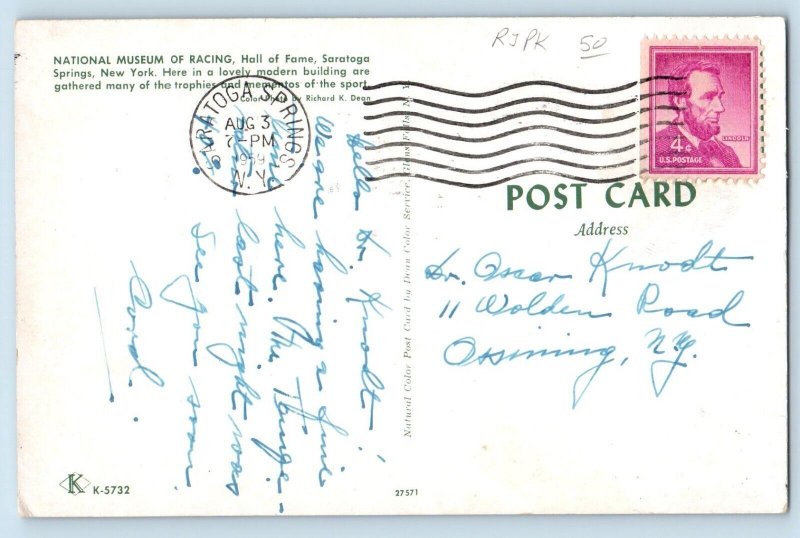 RJPK 50
NATIONAL MUSEUM OF RACING, Hall of Fame, Saratoga
Springs, New York. Here in a lovely modern building are
gathered many of the trophies and mementos of the sport.
Color Photo by Richard K. Dean
SARATOGA SPRINGS
AUG 3
7-PM
1959
N.Y.
4¢
LINCOLN
U.S. POSTAGE
POST CARD
Address
Dr. Oscar Knodt
11 Wolden Road
Ossining, N.Y.
Hello Dr. Knodt!
We are having a fine
time here. The
last night was
See you soon
Natural Color Post Card by Dean Color Service, Glens Falls, N. Y.
K
K-5732
27571